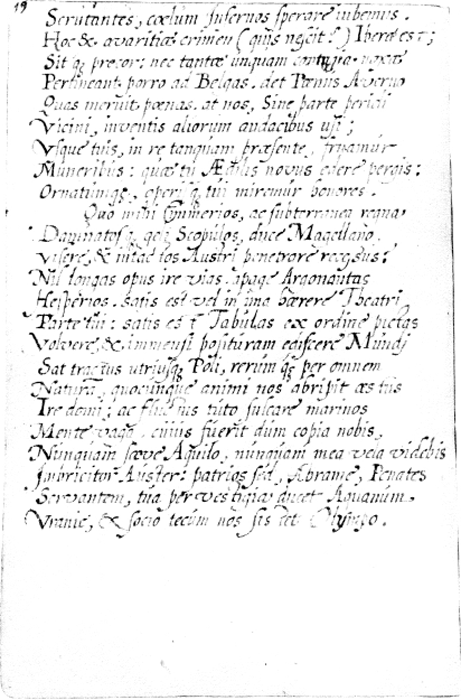 19
Scrutantes, cœlum Infernos sperare iubemus.
Hoc & avaritiæ crimen (quis nescit?) Ibere est;
Sit q; precor; nec tantæ unquam noxæ
Pertineant porro ad Belgas. det Pœnus Averno
Quas meruit pœnas. at nos, Sine parte pericli
Vicini, inventis aliorum audacibus usi;
Vsque tuis, in re tanquam præsente, fruamur
Muneribus: quæ tu Ædilis novus edere pergis:
Ornatumq;, operisq; tui miremur honores.
Quo mihi Cymmerios, ac subterranea regna
Damnatosq; Scopulos, duce Magellano,
Visere, & intactos Austri penetrare recessus?
Nil longas opus ire vias. apage Argonautas
Hesperios. satis est vel in una hærere Theatri
Parte tui: satis est Tabulas ex ordine pictas
Volvere, & immensi posituram ediscere Mundi
Sat tractus utriusq; Poli, rerumq; per omnem
Naturam, quocunque animi nos abripit æstus
Ire domi; ac fluctus tuto sulcare marinos
Mente vaga. cuius fuerit dum copia nobis,
Nunquam sæve Aquilo, nunquam mea vela videbis
Imbricitor Auster: patrios sed, Abrame, Penates
Servantem, tua per vestigia ducet
Vranie, & socio tecum nos Olympo.